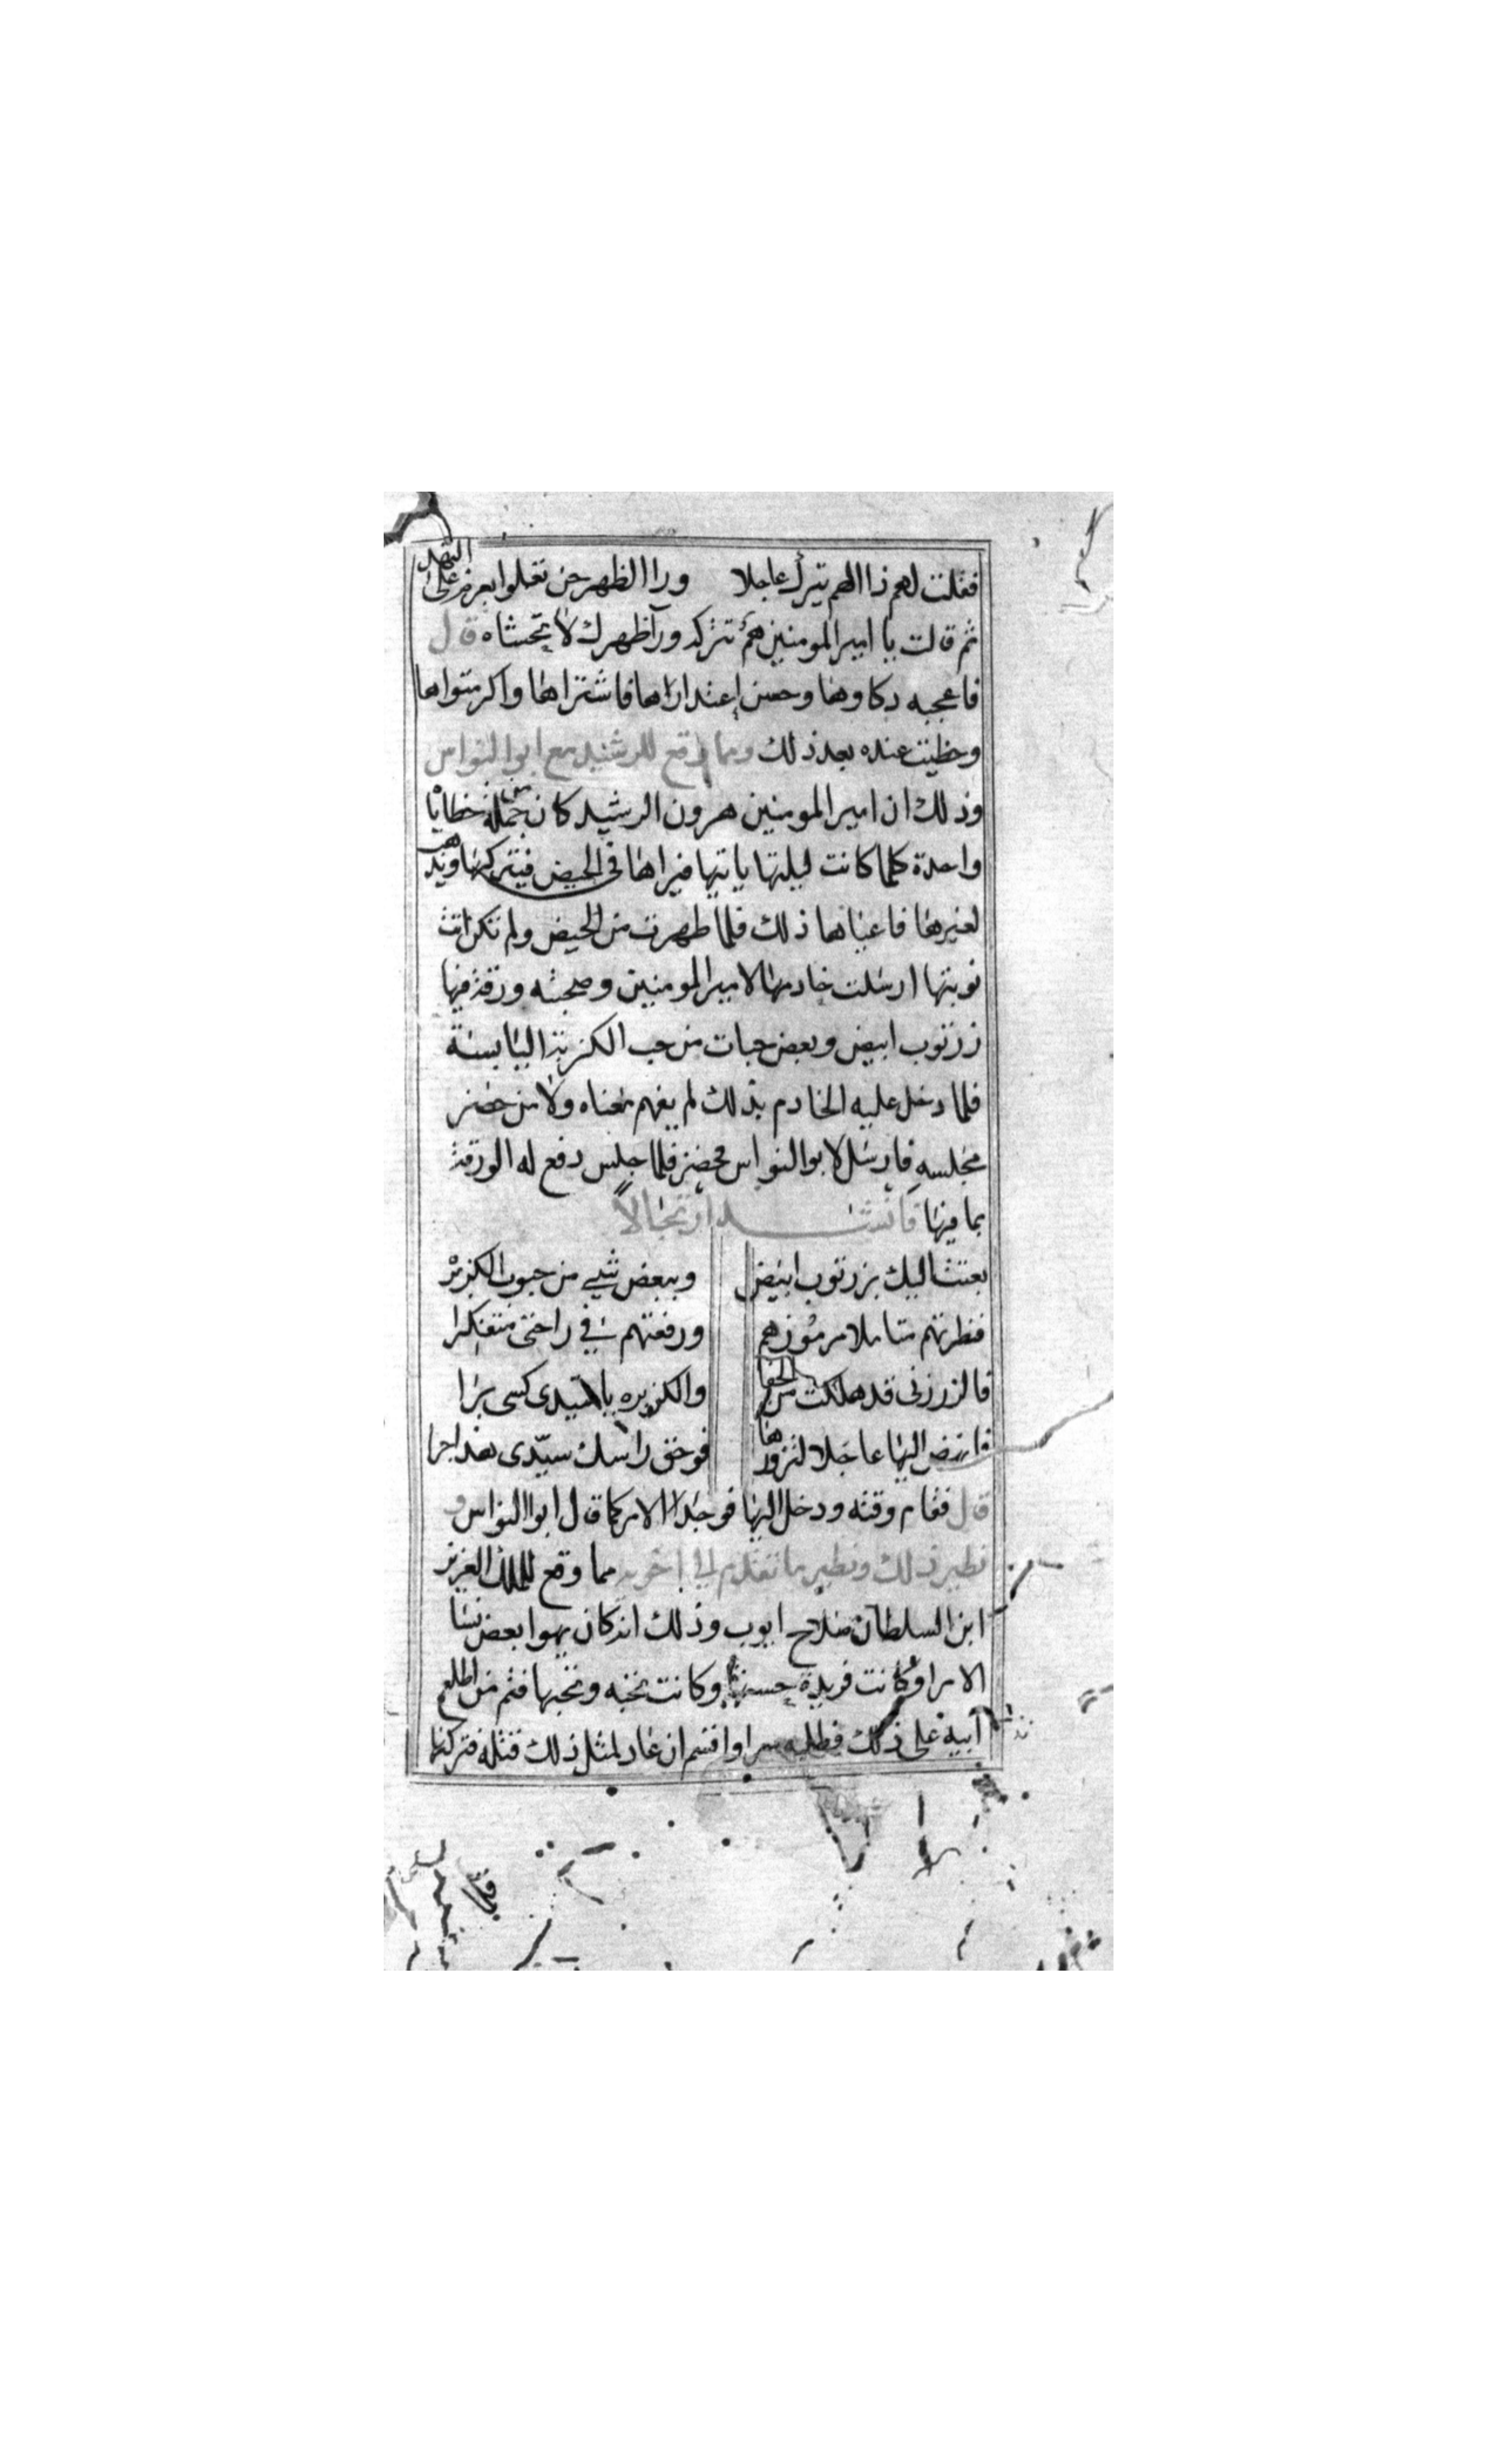 فقلت لهم ذا الهم يترك عاجلا ورا الظهر حتى تعلوا بعزم على النهد
ثم قالت يا امير المومنين هم تتركه ورآ ظهرك لا تخشاه قال
فاعجبه دكاوها وحسن إعتدارآها فاشتراها واكرم متواها
وحظيت عنده بعد ذلك ومما وقع للرشيد مع ابوا النواس
وذلك ان امير المومنين هرون الرشيد كان من جملة خطايا
واحدة كلما كانت ليلتها ياتيها فيراها في الحيض فيتركها ويذهب
لغيرها فاعياها ذلك فلما طهرت من الحيض ولم تكن اتت
نوبتها ارسلت خادمها لامير المومنين وصحبته ورقة فيها
زرتوب ابيض وبعض حبات من حب الكزبرة اليابسة
فلما دخل عليه الخادم بذلك لم يفهم معناه ولا من حضر
مجلسه فارسل لابوا النواس فحضر فلما جلس دفع له الورقة
بما فيها فانشد ارتجالاً
بعتت اليك بزرتوب ابيض وببعض شيء من حبوب الكزبره
فنظرتهم متاملا مرموزهم ورفعتهم في راحتي متفكرا
قا لزرزني قد هلكت من الجفا والكزبره يا سيدي كسي برا
فانهض اليها عاجلا لتزورها فوحق راسك سيّدي هذا جرا
قال فقام وقته ودخل اليها فوجد الامر كما قال ابوا النواس و
نظير ذلك ونظير ما تقدم لي اخره مما وقع للملك العزيز
ابن السلطان صلاح ايوب وذلك انه كان يهوا بعض نسا
الامرا وكانت فريدة حسنها وكانت تحبه ويحبها فثم من اطلع
آبيه على ذلك فطلبه سرا واقسم ان عاد لمثل ذلك قتله فتركها